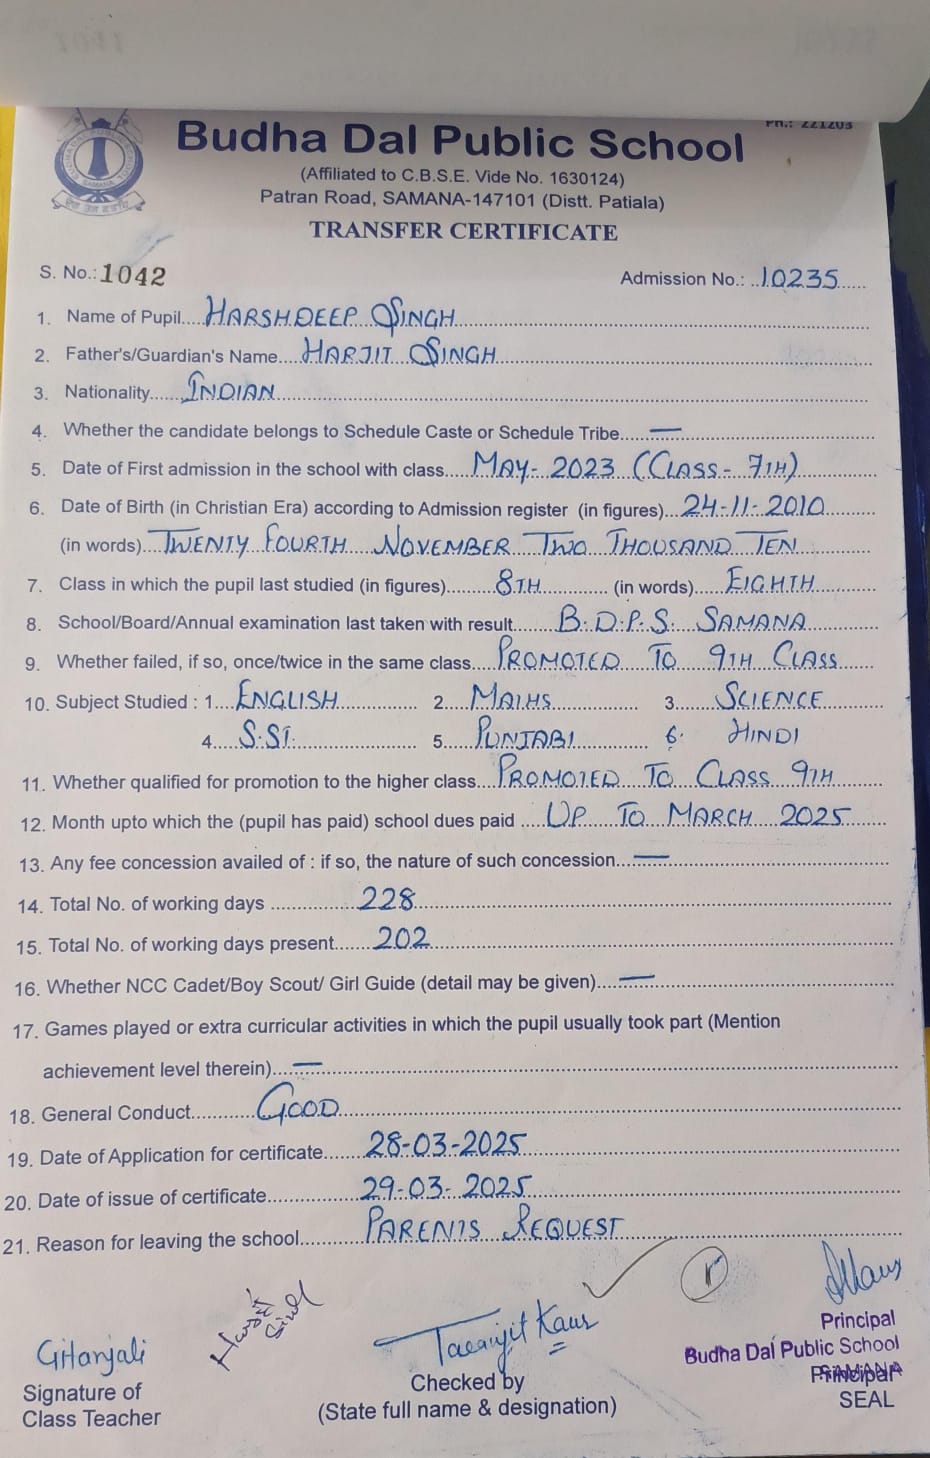 Ph.: 221203
Budha Dal Public School
(Affiliated to C.B.S.E. Vide No. 1630124)
Patran Road, SAMANA-147101 (Distt. Patiala)
TRANSFER CERTIFICATE
S. No.: 1042 Admission No.: 10235
1. Name of Pupil HARSHDEEP SINGH
2. Father's/Guardian's Name HARJIT SINGH
3. Nationality INDIAN
4. Whether the candidate belongs to Schedule Caste or Schedule Tribe —
5. Date of First admission in the school with class MAY- 2023 (CLASS- 7TH)
6. Date of Birth (in Christian Era) according to Admission register (in figures) 24-11-2010
(in words) TWENTY FOURTH NOVEMBER TWO THOUSAND TEN
7. Class in which the pupil last studied (in figures) 8TH (in words) EIGHTH
8. School/Board/Annual examination last taken with result B.D.P.S. SAMANA
9. Whether failed, if so, once/twice in the same class PROMOTED TO 9TH CLASS
10. Subject Studied : 1. ENGLISH 2. MATHS 3. SCIENCE
4. S.ST. 5. PUNJABI 6. HINDI
11. Whether qualified for promotion to the higher class PROMOTED TO CLASS 9TH
12. Month upto which the (pupil has paid) school dues paid UP TO MARCH 2025
13. Any fee concession availed of : if so, the nature of such concession —
14. Total No. of working days 228
15. Total No. of working days present 202
16. Whether NCC Cadet/Boy Scout/ Girl Guide (detail may be given) —
17. Games played or extra curricular activities in which the pupil usually took part (Mention
achievement level therein) —
18. General Conduct GOOD
19. Date of Application for certificate 28-03-2025
20. Date of issue of certificate 29-03-2025
21. Reason for leaving the school PARENTS REQUEST
Gitanjali
Signature of
Class Teacher
Harjit
Singh
Taranjit Kaur
Checked by
(State full name & designation)
Principal
Budha Dal Public School
SAMANA
Principal
SEAL